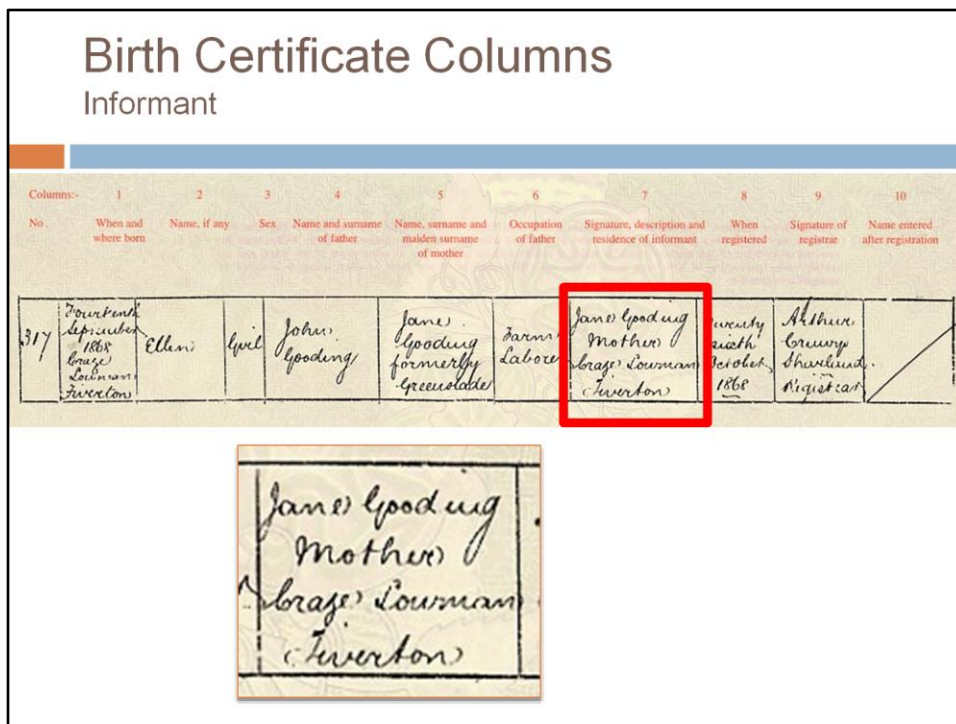 Birth Certificate Columns
Informant
Columns:- 1 2 3 4 5 6 7 8 9 10
No. When and where born Name, if any Sex Name and surname of father Name, surname and maiden surname of mother Occupation of father Signature, description and residence of informant When registered Signature of registrar Name entered after registration
317
Fourteenth
September
1868
Craze
Lowman
Tiverton
Ellen
Girl
John
Gooding
Jane
Gooding
formerly
Greenslade
Farm
Labore
Jane Gooding
Mother
Craze Lowman
Tiverton
wenty
sixth
October
1868
Arthur
Cruwys
Sharland
Registrar
Jane Gooding
Mother
Craze Lowman
Tiverton